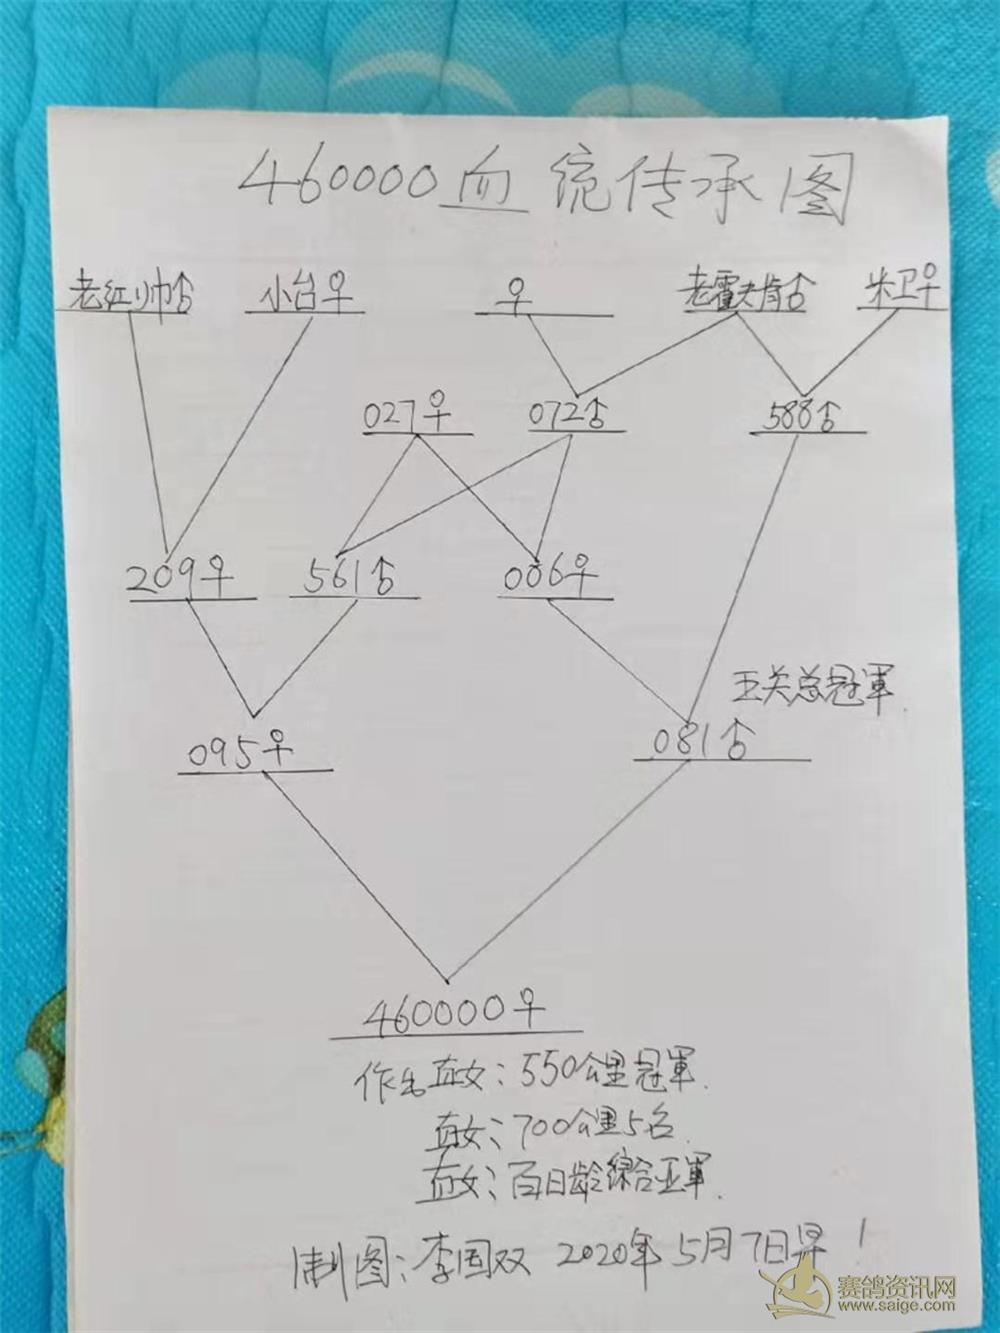 460000血统传承图
老红帅♂ 小台♀ ♀ 老霍夫肯♂ 朱卫♀
027♀ 072♂ 588♂
209♀ 561♂ 006♀
五关总冠軍
095♀ 081♂
460000♀
作出直女：550公里冠軍.
直女：700公里5名.
直女：百日龄综合亚軍.
制图：李国双 2020年5月7日早！
赛鸽资讯网
www.saige.com